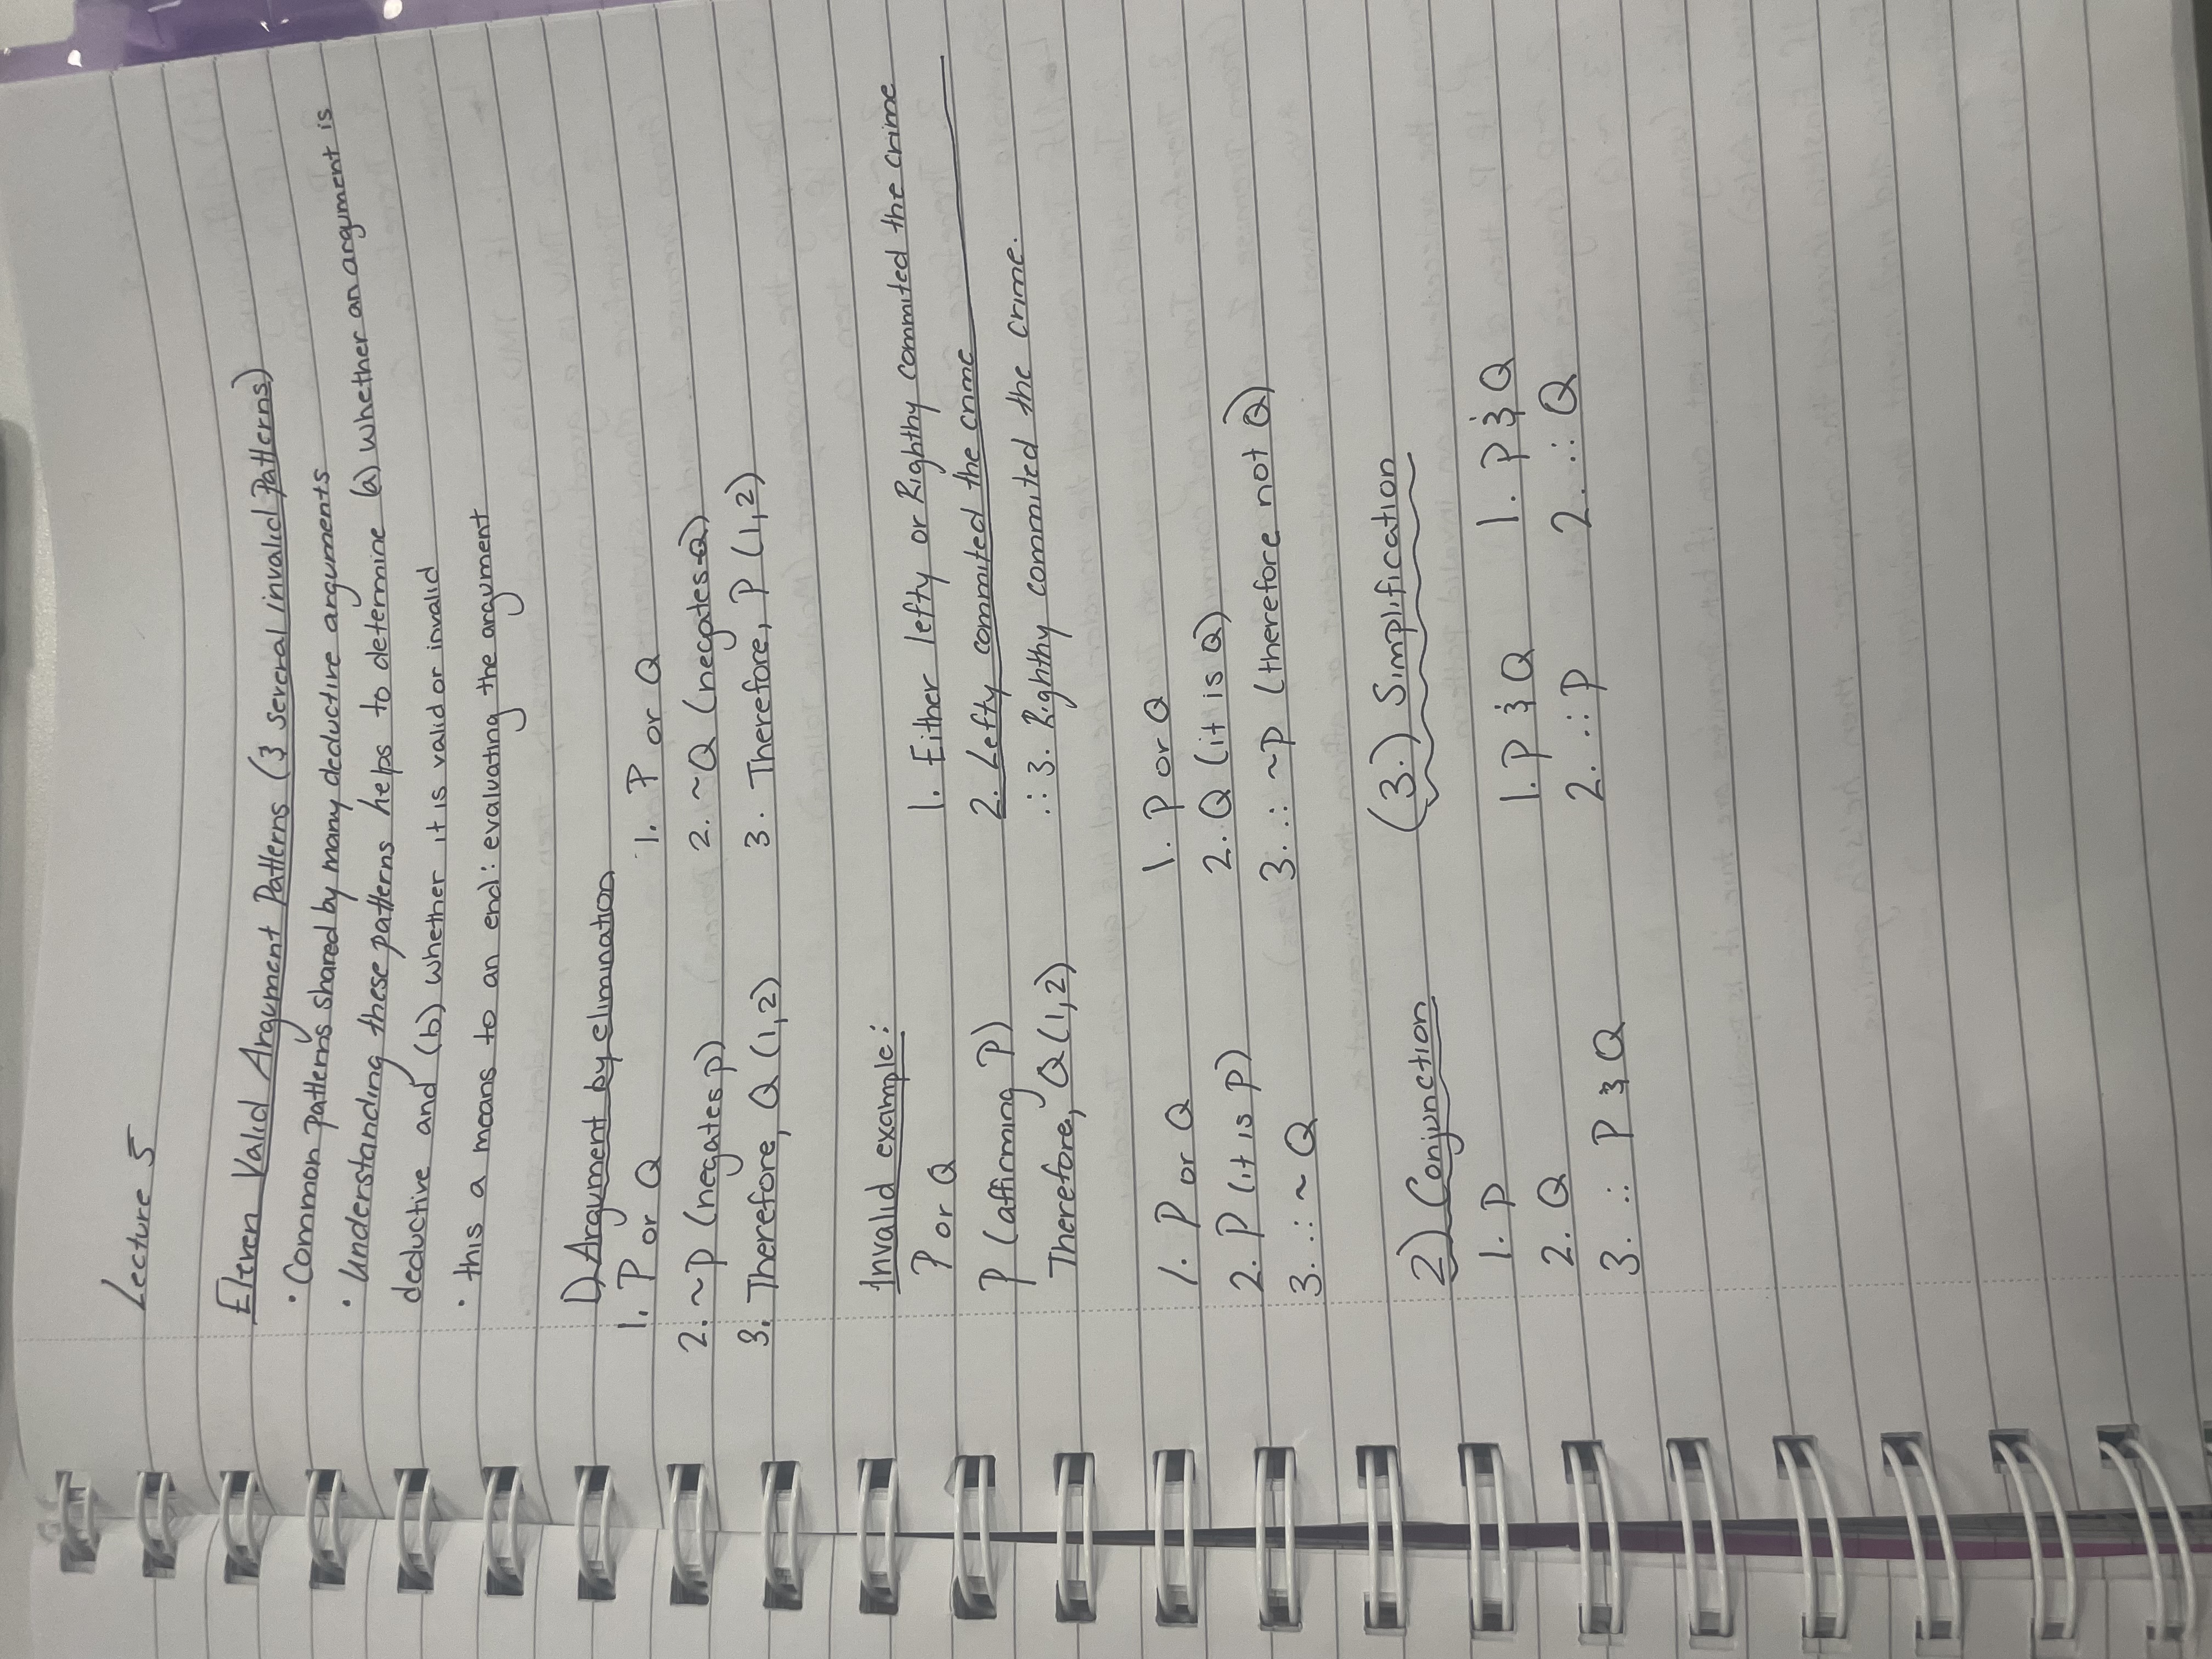 Lecture 5
Eleven Valid Argument Patterns (& several invalid Patterns)
• Common patterns shared by many deductive arguments
• Understanding these patterns helps to determine (a) whether an argument is
deductive and (b) whether it is valid or invalid
• this a means to an end: evaluating the argument
1) Argument by elimination
1. P or Q
2. ~P (negates p)
3. Therefore, Q (1,2)
1. P or Q
2. ~Q (negates Q)
3. Therefore, P (1,2)
Invalid example:
P or Q
P (affirming P)
Therefore, Q (1,2)
1. Either lefty or Righthy commited the crime
2. Lefty commited the crime
∴ 3. Righthy commited the crime.
1. P or Q
2. P (it is p)
3. ∴ ~ Q
1. P or Q
2. Q (it is Q)
3. ∴ ~P (therefore not Q)
2) Conjunction
1. P
2. Q
3. ∴ P & Q
(3.) Simplification
1. P & Q
2. ∴ P
1. P & Q
2. ∴ Q